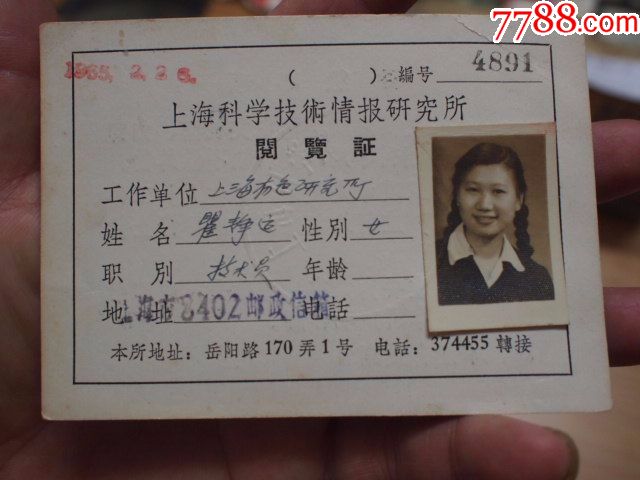 7788.com
1965. 2. 26.
( ) 編号 4891
上海科学技術情报研究所
閱覽証
工作单位 上海有色研究所
姓名 瞿静安 性别 女
职别 技术员 年龄
地址 上海市8402邮政信箱 电話
本所地址：岳阳路170弄1号 电話：374455轉接